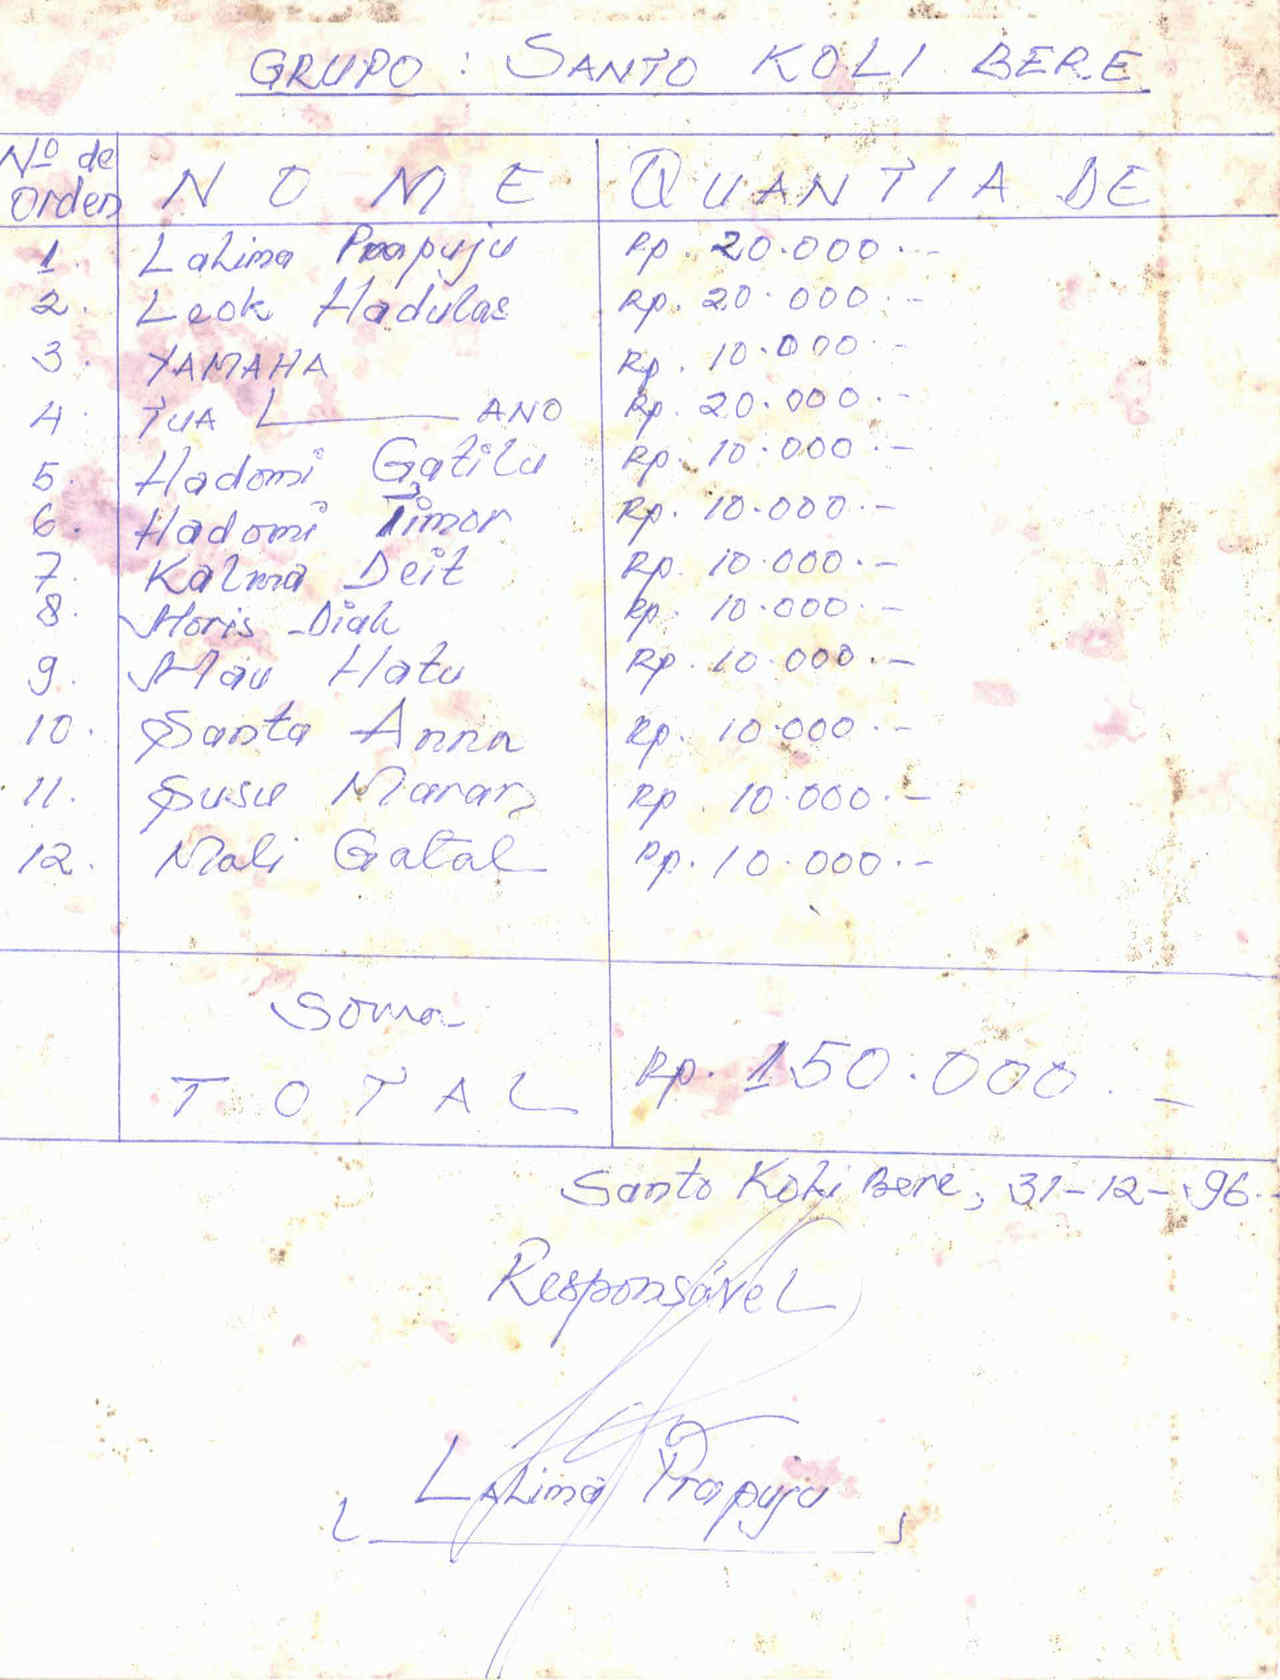 GRUPO : SANTO KOLI BERE
Nº de Orden NOME QUANTIA DE
1. Lalima Prapuju Rp. 20.000.-
2. Leok Hadulas Rp. 20.000.-
3. YAMAHA Rp. 10.000.-
4. TUA L——— ANO Rp. 20.000.-
5. Hadomi Gatilu Rp. 10.000.-
6. Hadomi Timor Rp. 10.000.-
7. Kalma Deit Rp. 10.000.-
8. Horis Diak Rp. 10.000.-
9. Mau Hatu Rp. 10.000.-
10. Santa Anna Rp. 10.000.-
11. Susu Maran Rp. 10.000.-
12. Mali Gatal Rp. 10.000.-
Soma
TOTAL Rp. 150.000.-
Santo Koli Bere, 31-12-96.-
Responsável
Lalima Prapuju